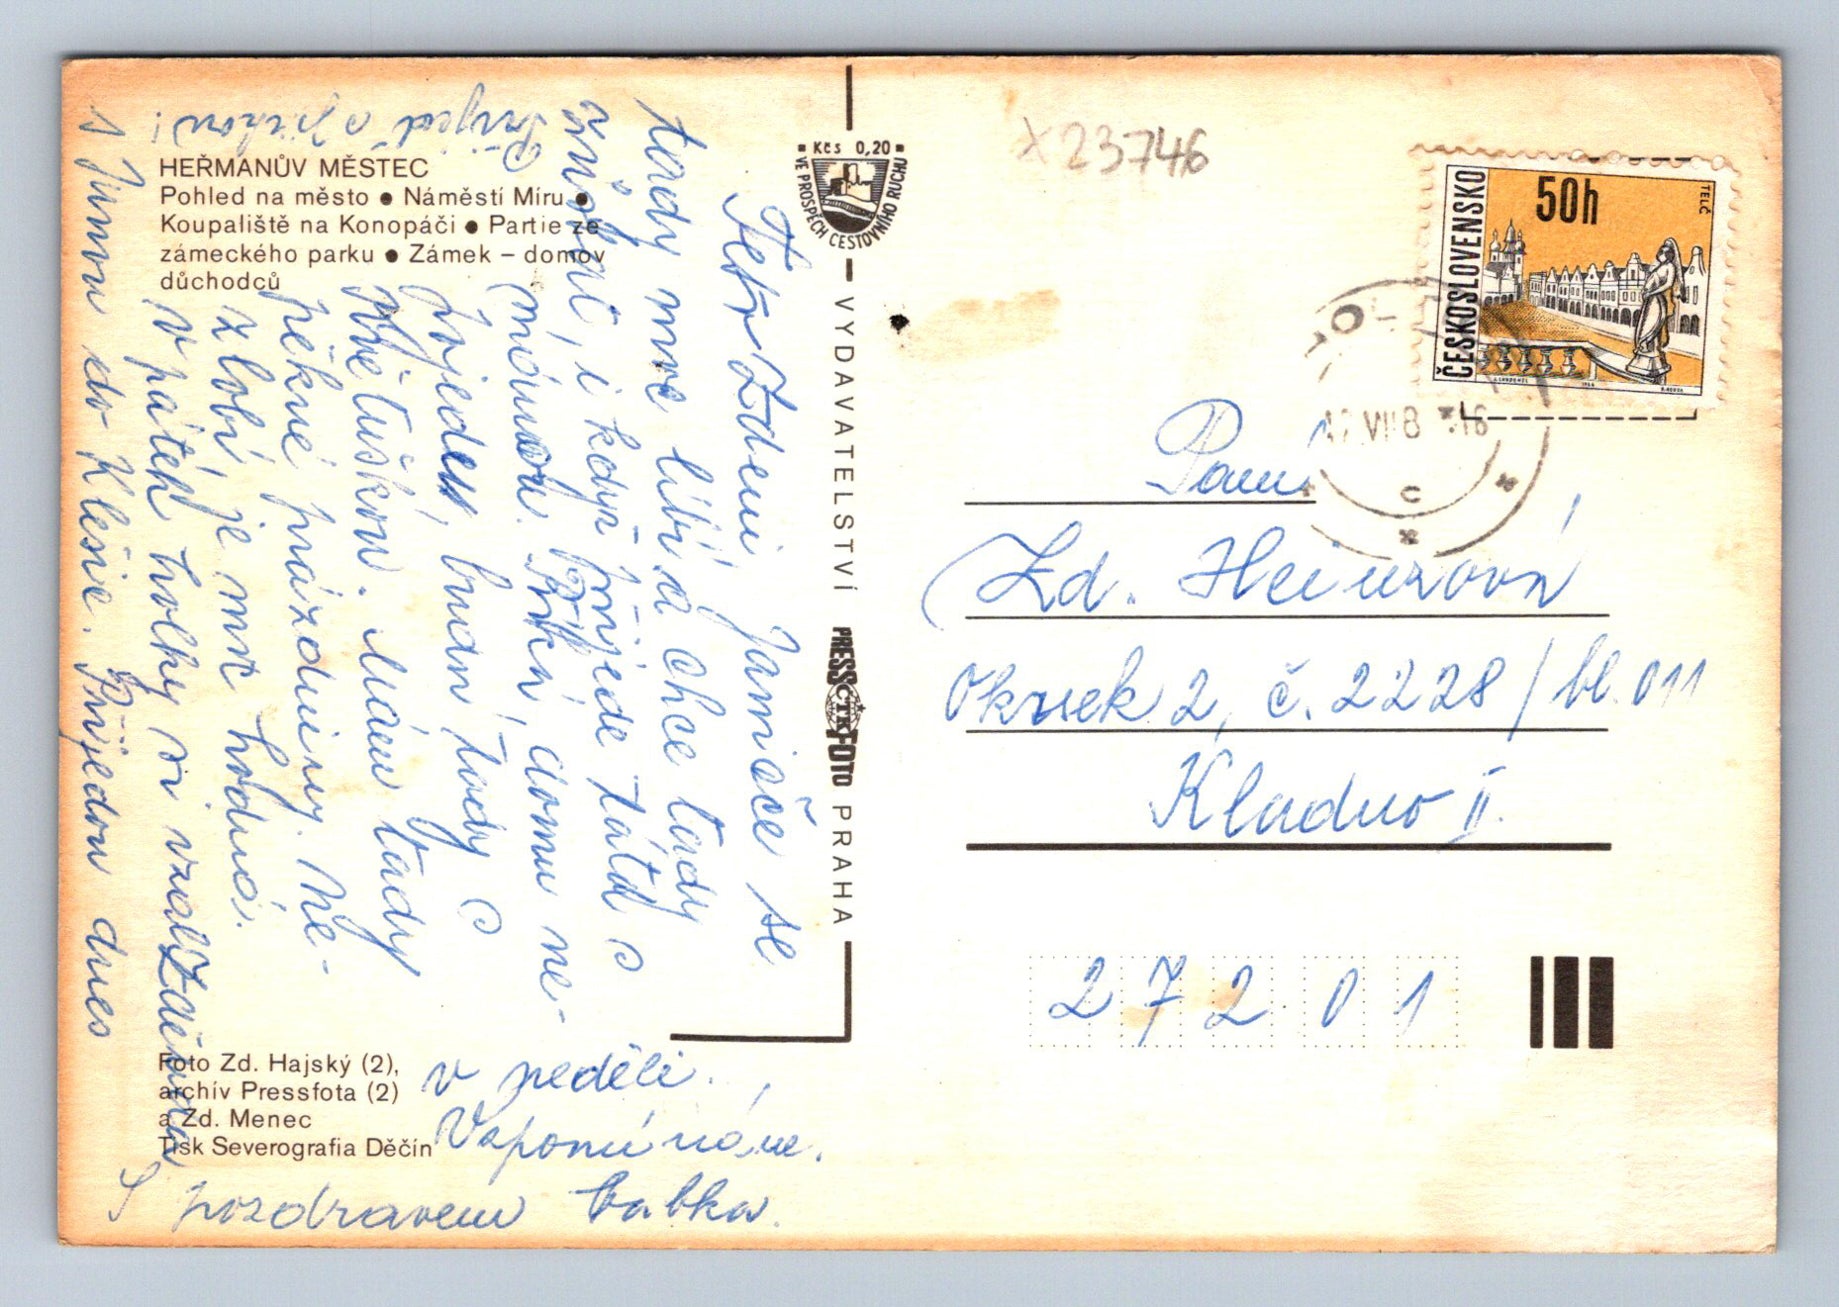 HEŘMANŮV MĚSTEC
Pohled na město ● Náměstí Míru ●
Koupaliště na Konopáči ● Partie ze
zámeckého parku ● Zámek – domov
důchodců
Foto Zd. Hajský (2),
archív Pressfota (2)
a Zd. Menec
Tisk Severografia Děčín
Kčs 0,20
VE PROSPĚCH CESTOVNÍHO RUCHU
VYDAVATELSTVÍ PRESSFOTO PRAHA
ČTK
X23746
ČESKOSLOVENSKO
50h
TELČ
Zdeni, Janičce se
tady moc líbí a chce tady
i když přijede táta s
domu ne-
pojede, budu tady s
Mám tady
pěkné prázdniny. Ne-
zlobí, je moc hodná.
v pátek holky si vzala Zdena
s Jirkou do Klešic. Přijedou dnes
v neděli.
Vzpomínáme.
S pozdravem babka.
Přijeď s
Paní
Zd.
Okrsek 2, č. 2228/bl. 011
Kladno II.
272 01